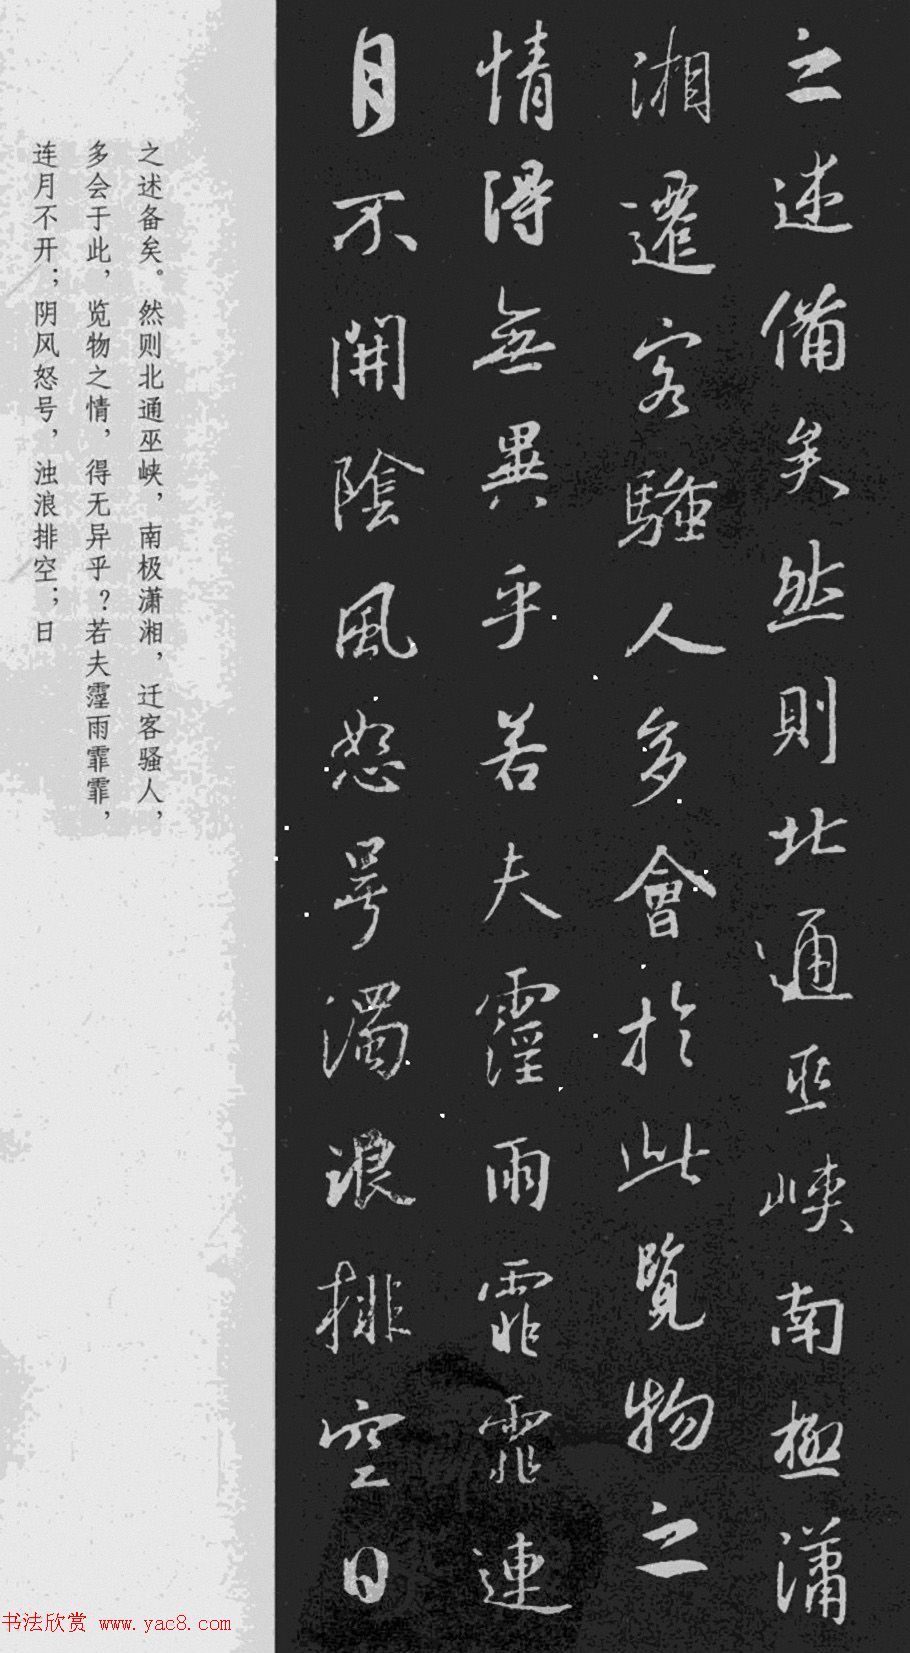 之述備矣然則北通巫峽南極瀟
湘遷客騷人多會於此覽物之
情得無異乎若夫霪雨霏霏連
月不開陰風怒号濁浪排空日
之述备矣。然则北通巫峡，南极潇湘，迁客骚人，
多会于此，览物之情，得无异乎？若夫霪雨霏霏，
连月不开；阴风怒号，浊浪排空；日
书法欣赏 www.yac8.com